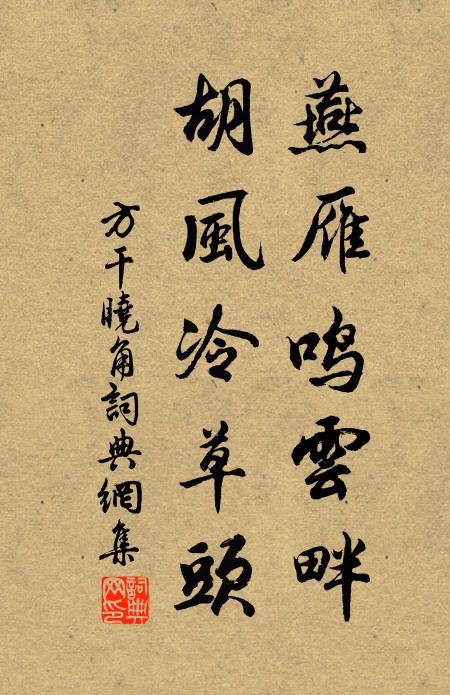 燕雁鳴雲畔
胡風冷草頭
方干曉角詞典網集
詞典網印